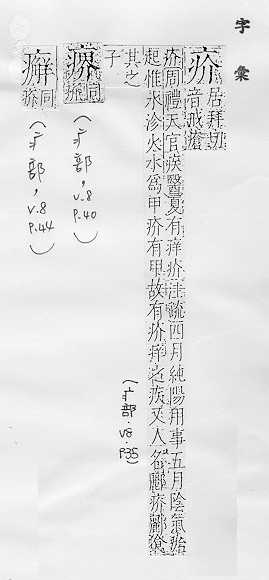 字彙
疥 居拜切
音戒瘡
疥周禮天官疾醫夏有痒疥注疏四月純陽用事五月陰氣始
起惟水沴火水為甲疥有甲故有疥痒之疾又人名酈疥酈食
其之
子
(疒部.v8.P.35)
同
疥
(疒部，v.8 P.40)
癬 同
疥
(疒部，v.8 P.44)